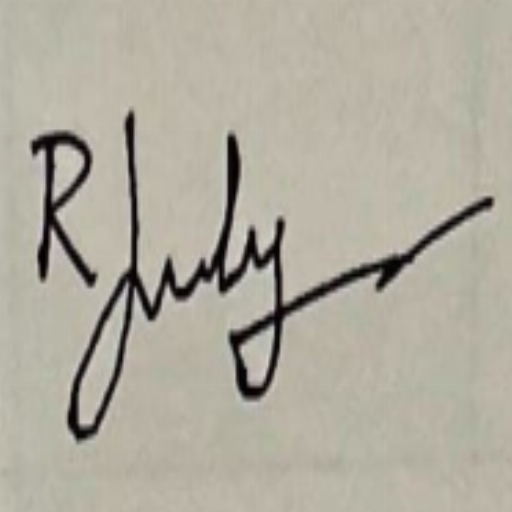 R July